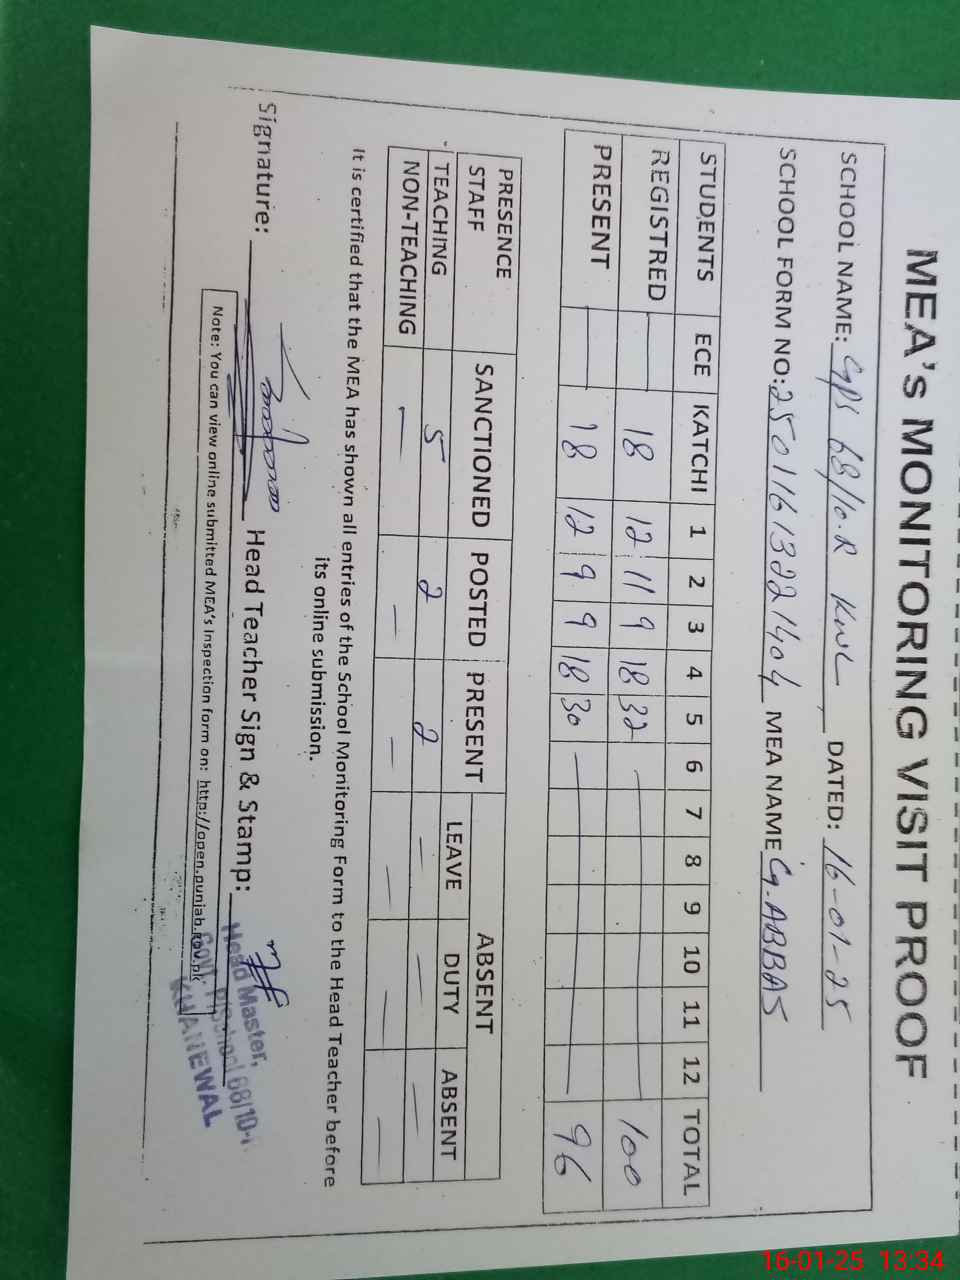 MEA's MONITORING VISIT PROOF
SCHOOL NAME: GPS 68/10.R KWL DATED: 16-01-25
SCHOOL FORM NO: 25011613221404 MEA NAME G.ABBAS
STUDENTS ECE KATCHI 1 2 3 4 5 6 7 8 9 10 11 12 TOTAL
REGISTRED — 18 12 11 9 18 32 — 100
PRESENT — 18 12 9 9 18 30 — 96
PRESENCE STAFF SANCTIONED POSTED PRESENT ABSENT
LEAVE DUTY ABSENT
TEACHING 5 2 2 — — —
NON-TEACHING — — — — — —
It is certified that the MEA has shown all entries of the School Monitoring Form to the Head Teacher before
its online submission.
Signature: Head Teacher Sign & Stamp:
Head Master,
Govt. P/School 68/10-
KHANEWAL
Note: You can view online submitted MEA's Inspection form on: http://open.punjab.gov.pk
16-01-25 13:34